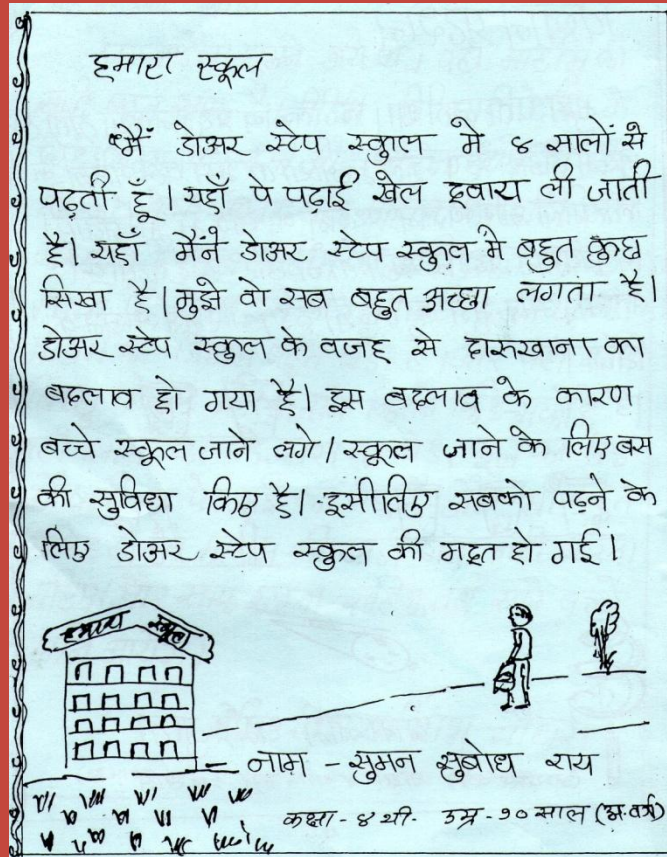 हमारा स्कूल
"मैं डोअर स्टेप स्कुल मे ४ सालों से
पढ़ती हूँ । यहाँ पे पढाई खेल द्वारा ली जाती
है। यहाँ मैंने डोअर स्टेप स्कुल मे बहुत कुछ
सिखा है। मुझे वो सब बहुत अच्छा लगता है।
डोअर स्टेप स्कुल के वजह से दारुखाना का
बदलाव हो गया है। इस बदलाव के कारण
बच्चे स्कूल जाने लगे। स्कूल जाने के लिए बस
की सुविधा किए है। इसीलिए सबको पढ़ने के
लिए डोअर स्टेप स्कुल की मद्त हो गई।
हमारा स्कूल
– नाम – सुमन सुबोध राय
कक्षा - ४ थी. उम्र - १० साल (अ.वर्ग)